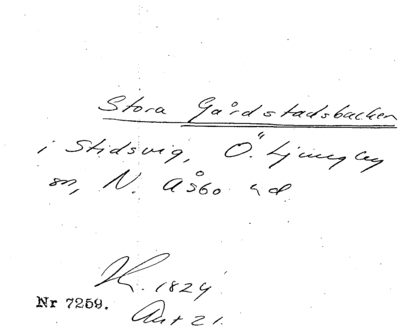 Stora Gårdstadsbacken
i Stidsvig, Ö. Ljungby
sn, N. Åsbo hd
1824
Nr 7259.
21.